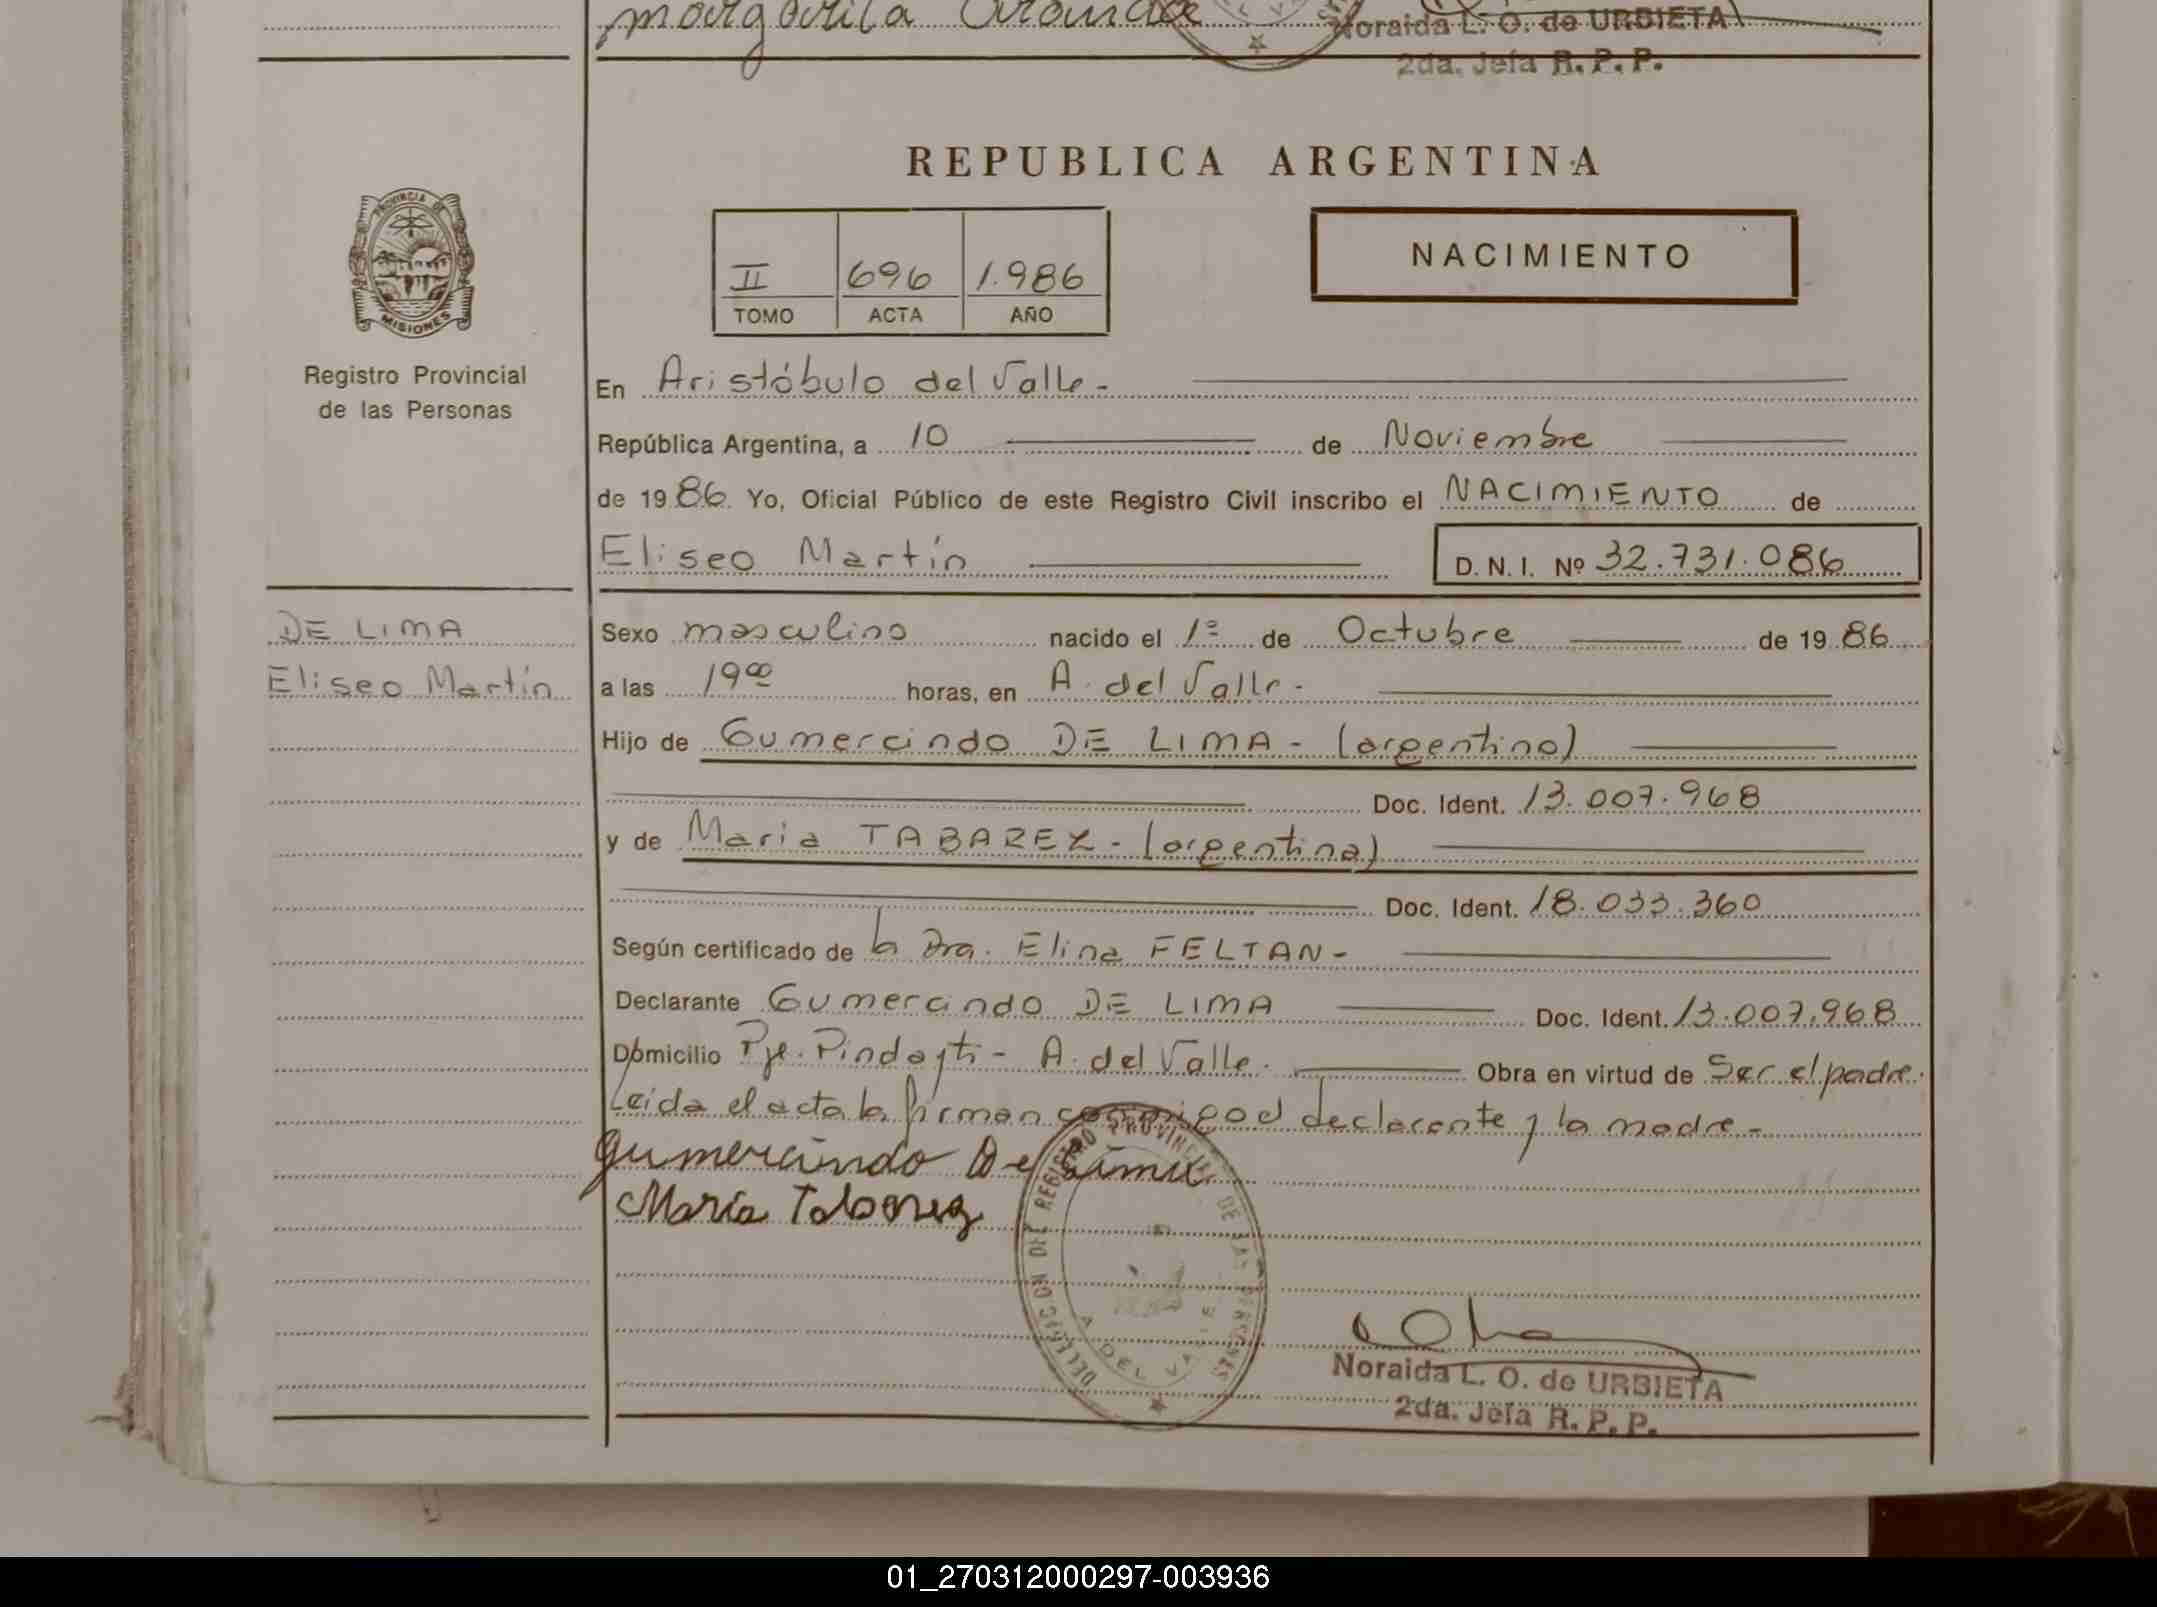 margarita
Noraida L. O. de URBIETA
2da. Jefa R. P. P.
REPUBLICA ARGENTINA
PROVINCIA DE
MISIONES
Registro Provincial
de las Personas
II 696 1.986
TOMO ACTA AÑO
NACIMIENTO
En Aristóbulo del Valle -
República Argentina, a 10 de Noviembre
de 1986. Yo, Oficial Público de este Registro Civil inscribo el NACIMIENTO de
Eliseo Martín D. N. I. Nº 32.731.086
DE LIMA
Eliseo Martín
Sexo masculino nacido el 1º de Octubre de 1986
a las 19 00 horas, en A. del Valle -
Hijo de Gumercindo DE LIMA - (argentino)
Doc. Ident. 13.007.968
y de Maria TABAREZ - (argentina)
Doc. Ident. 18.033.360
Según certificado de la Dra. Elina FELTAN -
Declarante Gumercindo DE LIMA Doc. Ident. 13.007.968
Domicilio Pje. Pindayti - A. del Valle. Obra en virtud de Ser el padre.
Leida el acta la firman conmigo el declarante y la madre -
Gumercindo De Lima
María Tabarez
DELEGACION DEL REGISTRO PROVINCIAL DE LAS PERSONAS
A. DEL VALLE
Noraida L. O. de URBIETA
2da. Jefa R. P. P.
01_270312000297-003936